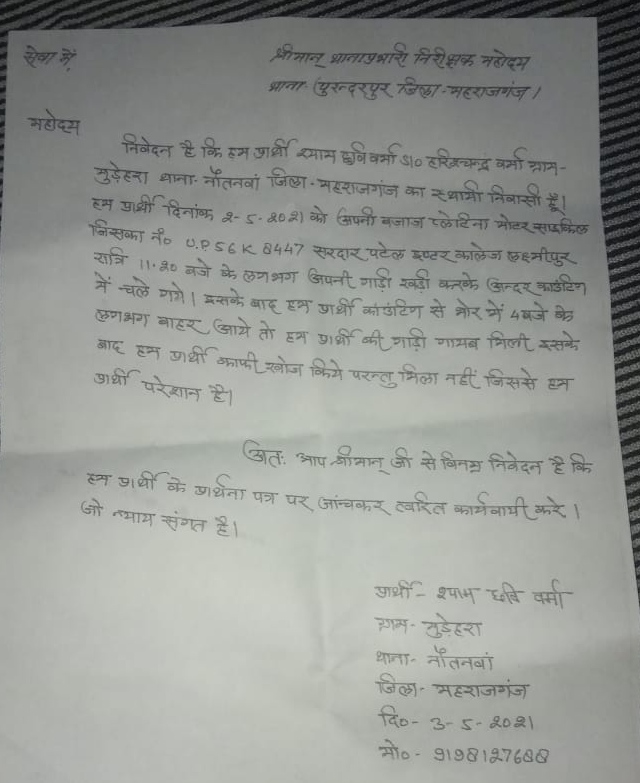 सेवा में,
श्रीमान् थानाप्रभारी निरीक्षक महोदय
थाना- पुरन्दरपुर जिला-महराजगंज।
महोदय
निवेदन है कि हम प्रार्थी श्याम छवि वर्मा S/० हरिश्चन्द्र वर्मा ग्राम-
मुड़ेहरा थाना- नौतनवां जिला-महराजगंज का स्थायी निवासी हूँ।
हम प्रार्थी दिनांक 2-5-2021 को अपनी बजाज प्लेटिना मोटर साइकिल
जिसका नं० U.P 56 K 8447 सरदार पटेल इण्टर कालेज लक्ष्मीपुर
रात्रि 11.20 बजे के लगभग अपनी गाड़ी खड़ी करके अन्दर काउंटिंग
में चले गये। इसके बाद हम प्रार्थी कांउटिंग से भोर में 4 बजे के
लगभग बाहर आये तो हम प्रार्थी की गाड़ी गायब मिली इसके
बाद हम प्रार्थी काफी खोज किये परन्तु मिला नहीं जिससे हम
प्रार्थी परेशान है।
अत: आप श्रीमान् जी से विनम्र निवेदन है कि
हम प्रार्थी के प्रार्थना पत्र पर जांचकर त्वरित कार्यवायी करे।
जो न्याय संगत है।
प्रार्थी- श्याम छवि वर्मा
ग्राम- मुड़ेहरा
थाना- नौतनवां
जिला- महराजगंज
दि०- 3-5-2021
मो०- 9198127688